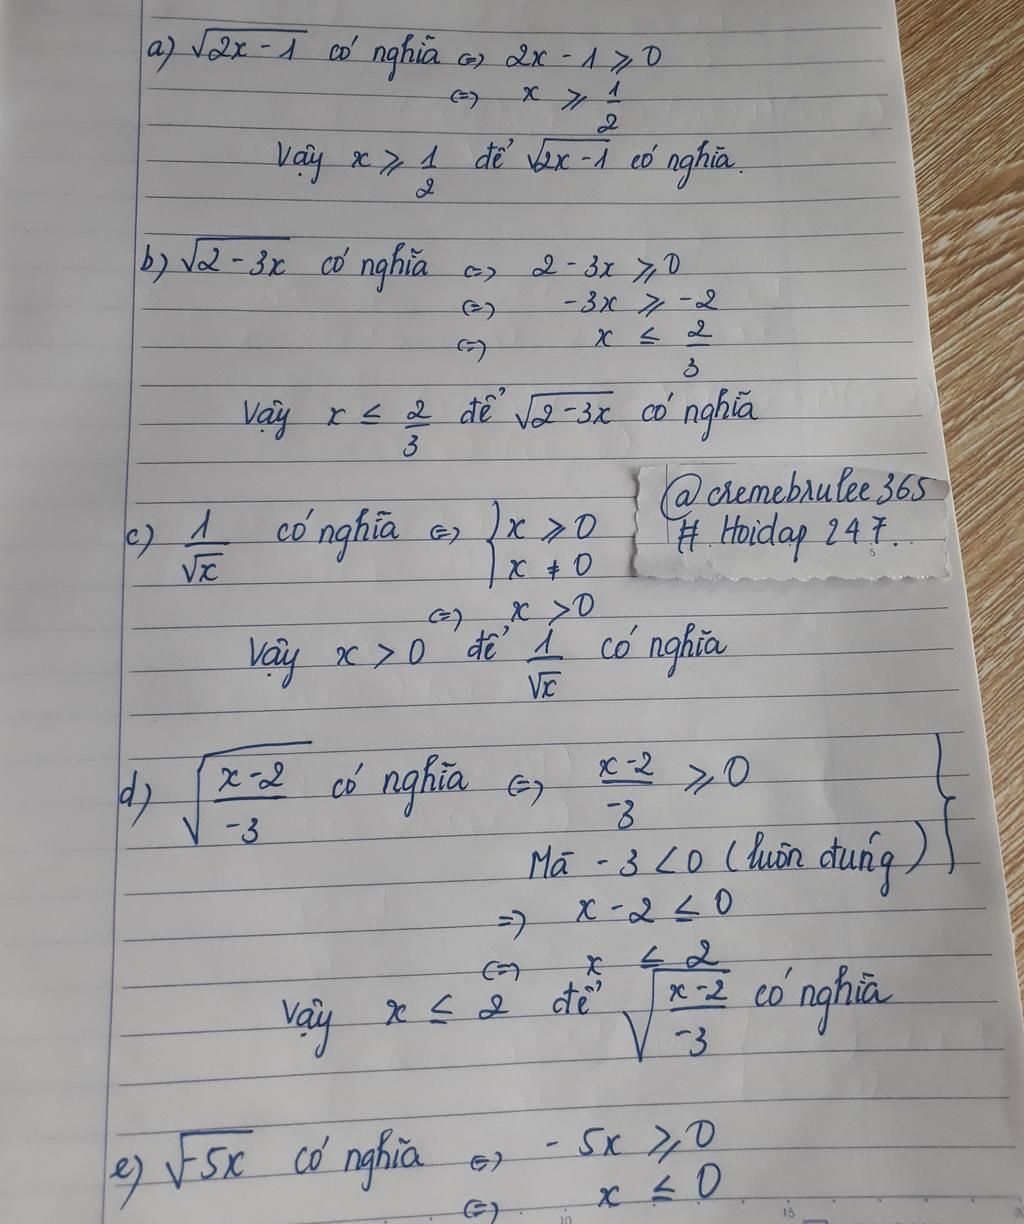 a) √2x - 1 có nghĩa ⇔ 2x - 1 ⩾ 0
⇔ x ⩾ 1/2
Vậy x ⩾ 1/2 để √2x - 1 có nghĩa.
b) √2 - 3x có nghĩa ⇔ 2 - 3x ⩾ 0
⇔ -3x ⩾ -2
⇔ x ≤ 2/3
Vậy x ≤ 2/3 để √2 - 3x có nghĩa
@cremebrulee365
# Hoidap 247.
c) 1/√x có nghĩa ⇔ { x ⩾ 0
x ≠ 0
⇔ x > 0
Vậy x > 0 để 1/√x có nghĩa
d) √(x - 2)/(-3) có nghĩa ⇔ (x - 2)/(-3) ⩾ 0 }
Mà - 3 < 0 (luôn đúng)
⇒ x - 2 ≤ 0
⇔ x ≤ 2
Vậy x ≤ 2 để √(x - 2)/(-3) có nghĩa
e) √-5x có nghĩa ⇔ - 5x ⩾ 0
⇔ x ≤ 0
10 15